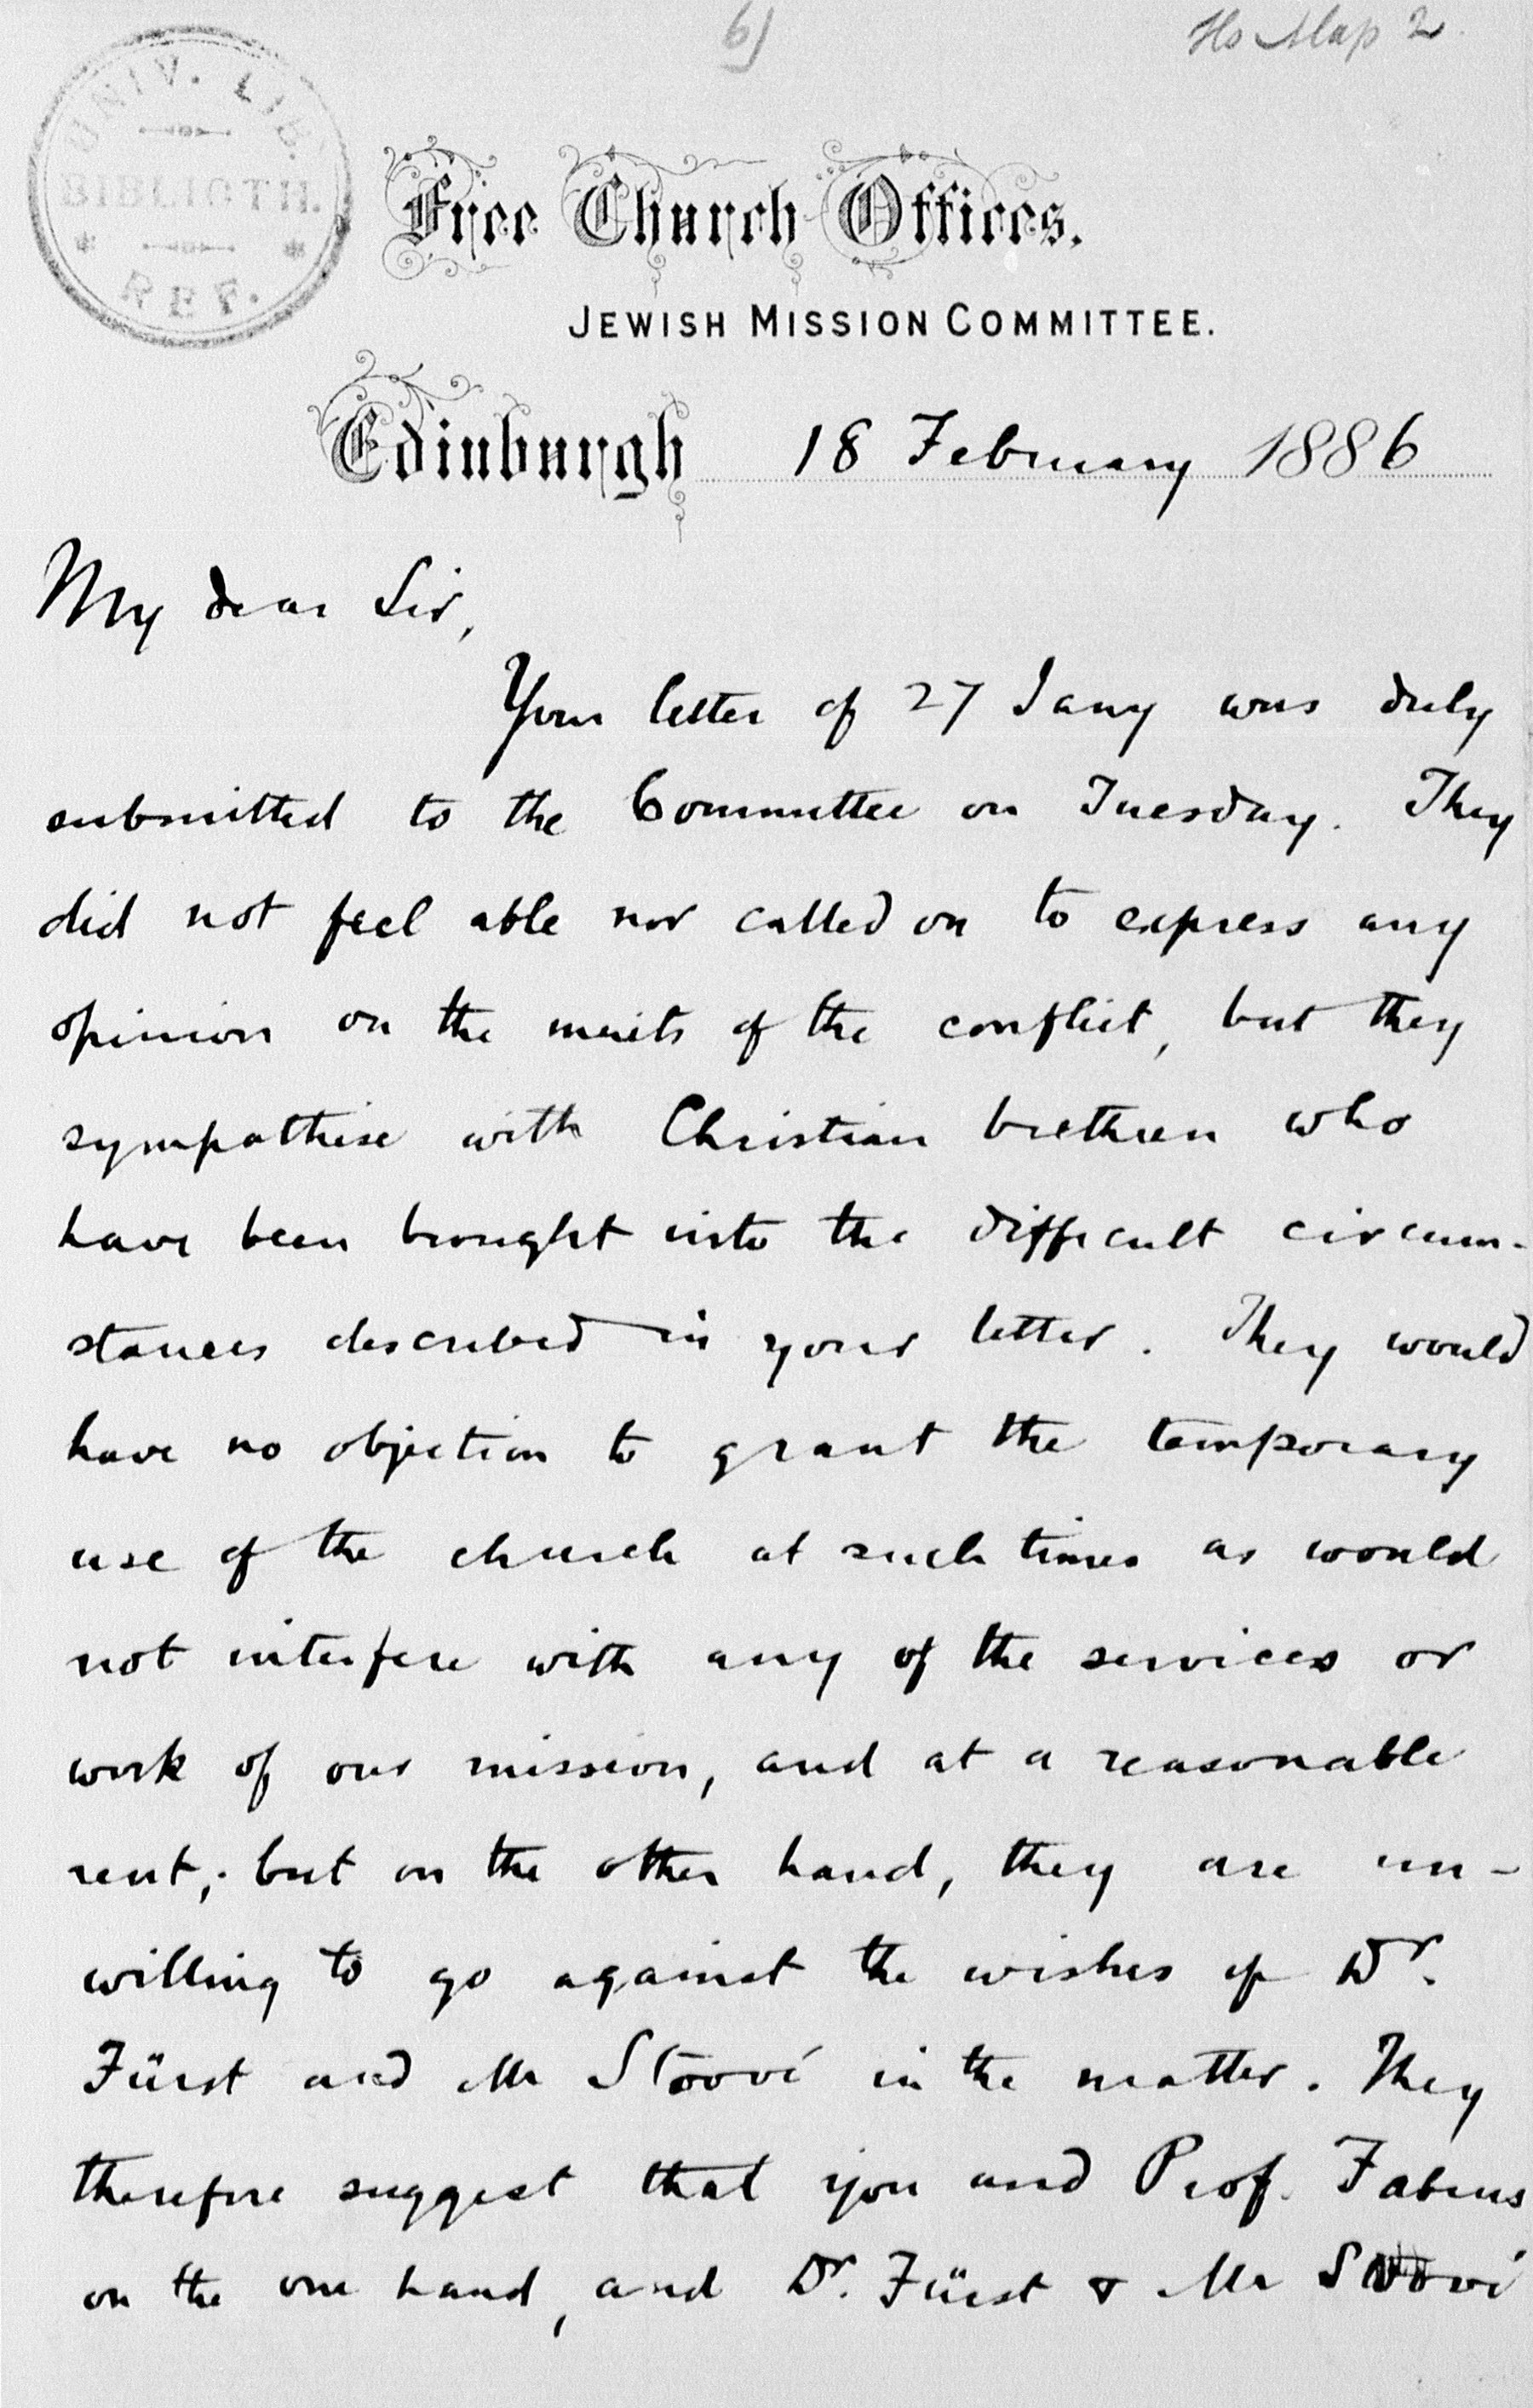 6)
Ho Map 2.
UNIV. LIB.
BIBLIOTH.
REF.
Free Church Offices.
JEWISH MISSION COMMITTEE.
Edinburgh 18 February 1886
My dear Sir,
Your letter of 27 Jany was duly
submitted to the Committee on Tuesday. They
did not feel able nor called on to express any
opinion on the merits of the conflict, but they
sympathise with Christian brethren who
have been brought into the difficult circum-
stances described in your letter. They would
have no objection to grant the temporary
use of the church at such times as would
not interfere with any of the services or
work of our mission, and at a reasonable
rent; but on the other hand, they are un-
willing to go against the wishes of Dr.
Fürst and Mr Stövé in the matter. They
therefore suggest that you and Prof. Fabius
on the one hand, and Dr. Fürst & Mr